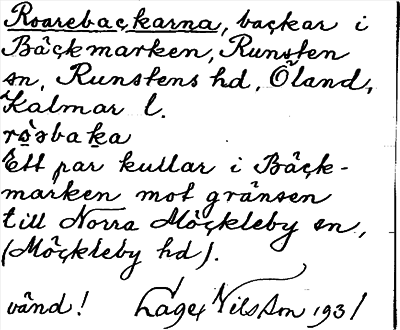 Roarebackarna, backar i
Bäckmarken, Runsten
sn, Runstens hd, Öland,
Kalmar l.
rò̱sbaḵa
Ett par kullar i Bäck-
marken mot gränsen
till Norra Möckleby sn,
(Möckleby hd).
vänd! Lage Nilsson 1931